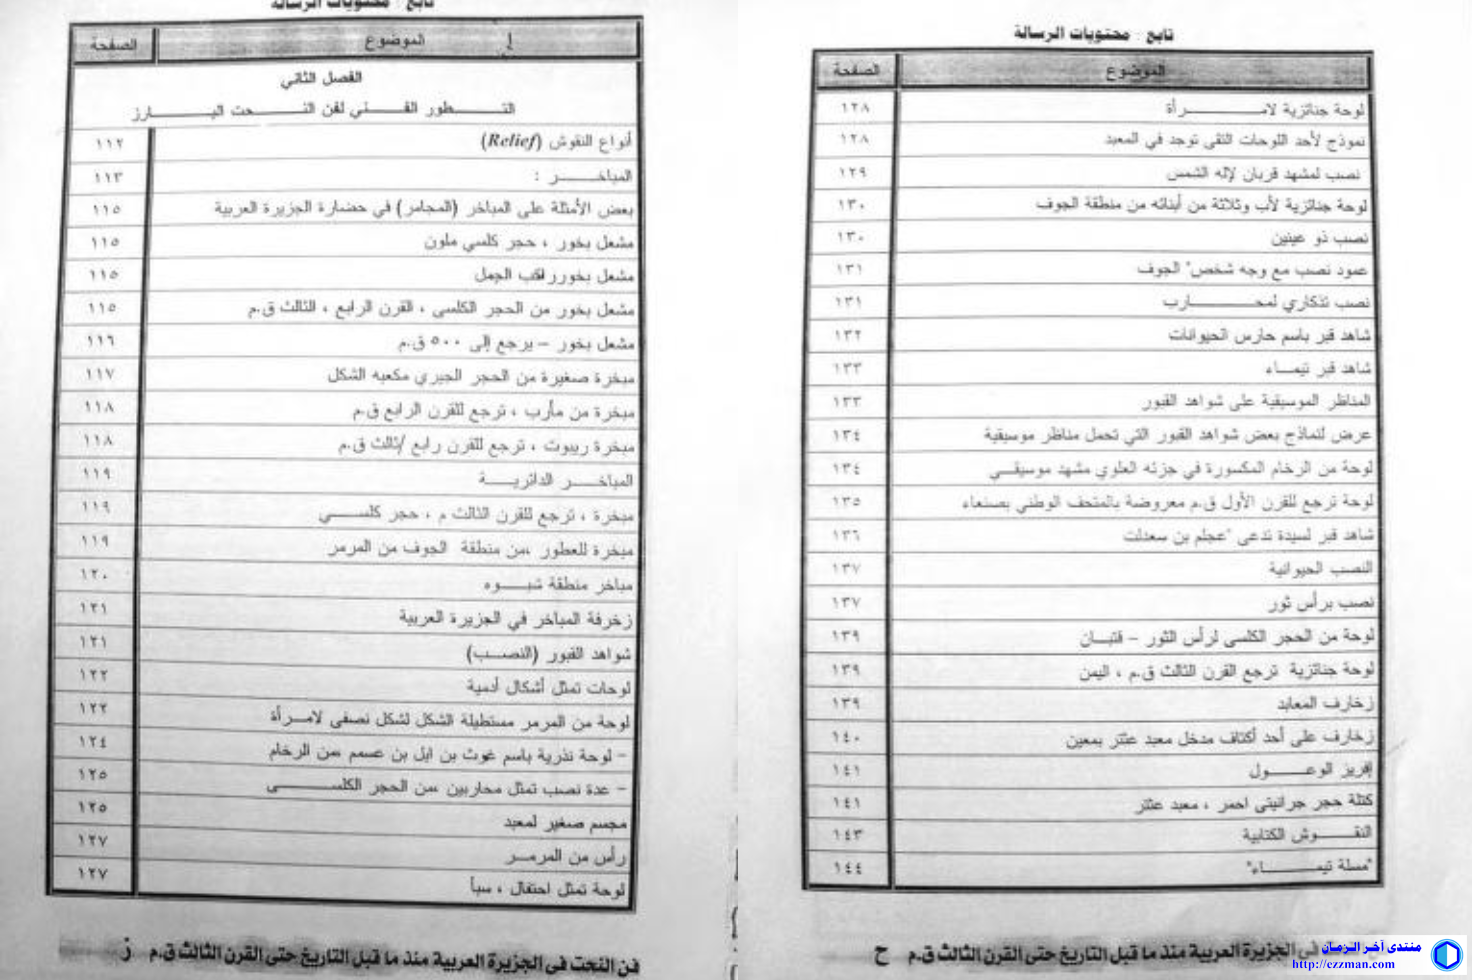 تابع : محتويات الرسالة
الصفحة الموضوع
لوحة جنائزية لامـــرأة ١٢٨
نموذج لأحد اللوحات التقى توجد في المعبد ١٢٨
نصب لمشهد قربان لإله الشمس ١٢٩
لوحة جنائزية لأب وثلاثة من أبنائه من منطقة الجوف ١٣٠
نصب ذو عينين ١٣٠
عمود نصب مع وجه شخص" الجوف ١٣١
نصب تذكاري لمحـــارب ١٣١
شاهد قبر باسم حارس الحيوانات ١٣٢
شاهد قبر تيمـاء ١٣٣
المناظر الموسيقية على شواهد القبور ١٣٣
عرض لنماذج بعض شواهد القبور التي تحمل مناظر موسيقية ١٣٤
لوحة من الرخام المكسورة في جزئه العلوي مشهد موسيقـي ١٣٤
لوحة ترجع للقرن الأول ق.م معروضة بالمتحف الوطني بصنعاء ١٣٥
شاهد قبر لسيدة تدعى "عجلم بن سعدلت ١٣٦
النصب الحيوانية ١٣٧
نصب برأس ثور ١٣٧
لوحة من الحجر الكلسى لرأس الثور – قتبـان ١٣٩
لوحة جنائزية ترجع القرن الثالث ق.م ، اليمن ١٣٩
زخارف المعابد ١٣٩
زخارف على أحد أكتاف مدخل معبد عثتر بمعين ١٤٠
إفريز الوعـــول ١٤١
كتلة حجر جرانيتى احمر ، معبد عثتر ١٤١
النقـــوش الكتابية ١٤٣
"مسلة تيمـــاء" ١٤٤
في الجزيرة العربية منذ ما قبل التاريخ حتى القرن الثالث ق.م ح
تابع : محتويات الرسالة
الصفحة الموضوع
الفصل الثاني
التـــطور الفـــني لفن النـــحت البـــارز
أنواع النقوش (Relief) ١١٢
المباخـــر : ١١٣
بعض الأمثلة على المباخر (المجامر) في حضارة الجزيرة العربية ١١٥
مشعل بخور ، حجر كلسي ملون ١١٥
مشعل بخورراكب الجمل ١١٥
مشعل بخور من الحجر الكلسى ، القرن الرابع ، الثالث ق.م ١١٥
مشعل بخور – يرجع إلى ٥٠٠ ق.م ١١٦
مبخرة صغيرة من الحجر الجيري مكعبه الشكل ١١٧
مبخرة من مأرب ، ترجع للقرن الرابع ق.م ١١٨
مبخرة ريبوت ، ترجع للقرن رابع /ثالث ق.م ١١٨
المباخـــر الدائريـــة ١١٩
مبخرة ، ترجع للقرن الثالث م ، حجر كلســـي ١١٩
مبخرة للعطور ،من منطقة الجوف من المرمر ١١٩
مباخر منطقة شبـــوه ١٢٠
زخرفة المباخر في الجزيرة العربية ١٢١
شواهد القبور (النصـب) ١٢١
لوحات تمثل أشكال أدمية ١٢٢
لوحة من المرمر مستطيلة الشكل لشكل نصفى لامـرأة ١٢٢
- لوحة نذرية باسم غوث بن ايل بن عسمم ،من الرخام ١٢٤
- عدة نصب تمثل محاربين ،من الحجر الكلســـى ١٢٥
مجسم صغير لمعبد ١٢٥
رأس من المرمـر ١٢٧
لوحة تمثل احتفال ، سبأ ١٢٧
فن النحت فى الجزيرة العربية منذ ما قبل التاريخ حتى القرن الثالث ق.م ز
منتدى آخر الزمان
http://ezzman.com